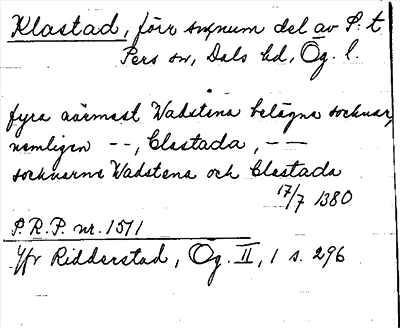 Klastad, förr sn, num del av S:t
Pers sn, Dals hd, Ög. l.
fyra närmast Wadstena belägna socknar,
nemligen --, Clastada, --
socknarne Wadstena och Clastada
17/7 1380
S.R.P. nr. 1511
Jfr Ridderstad, Ög. II, 1 s. 296